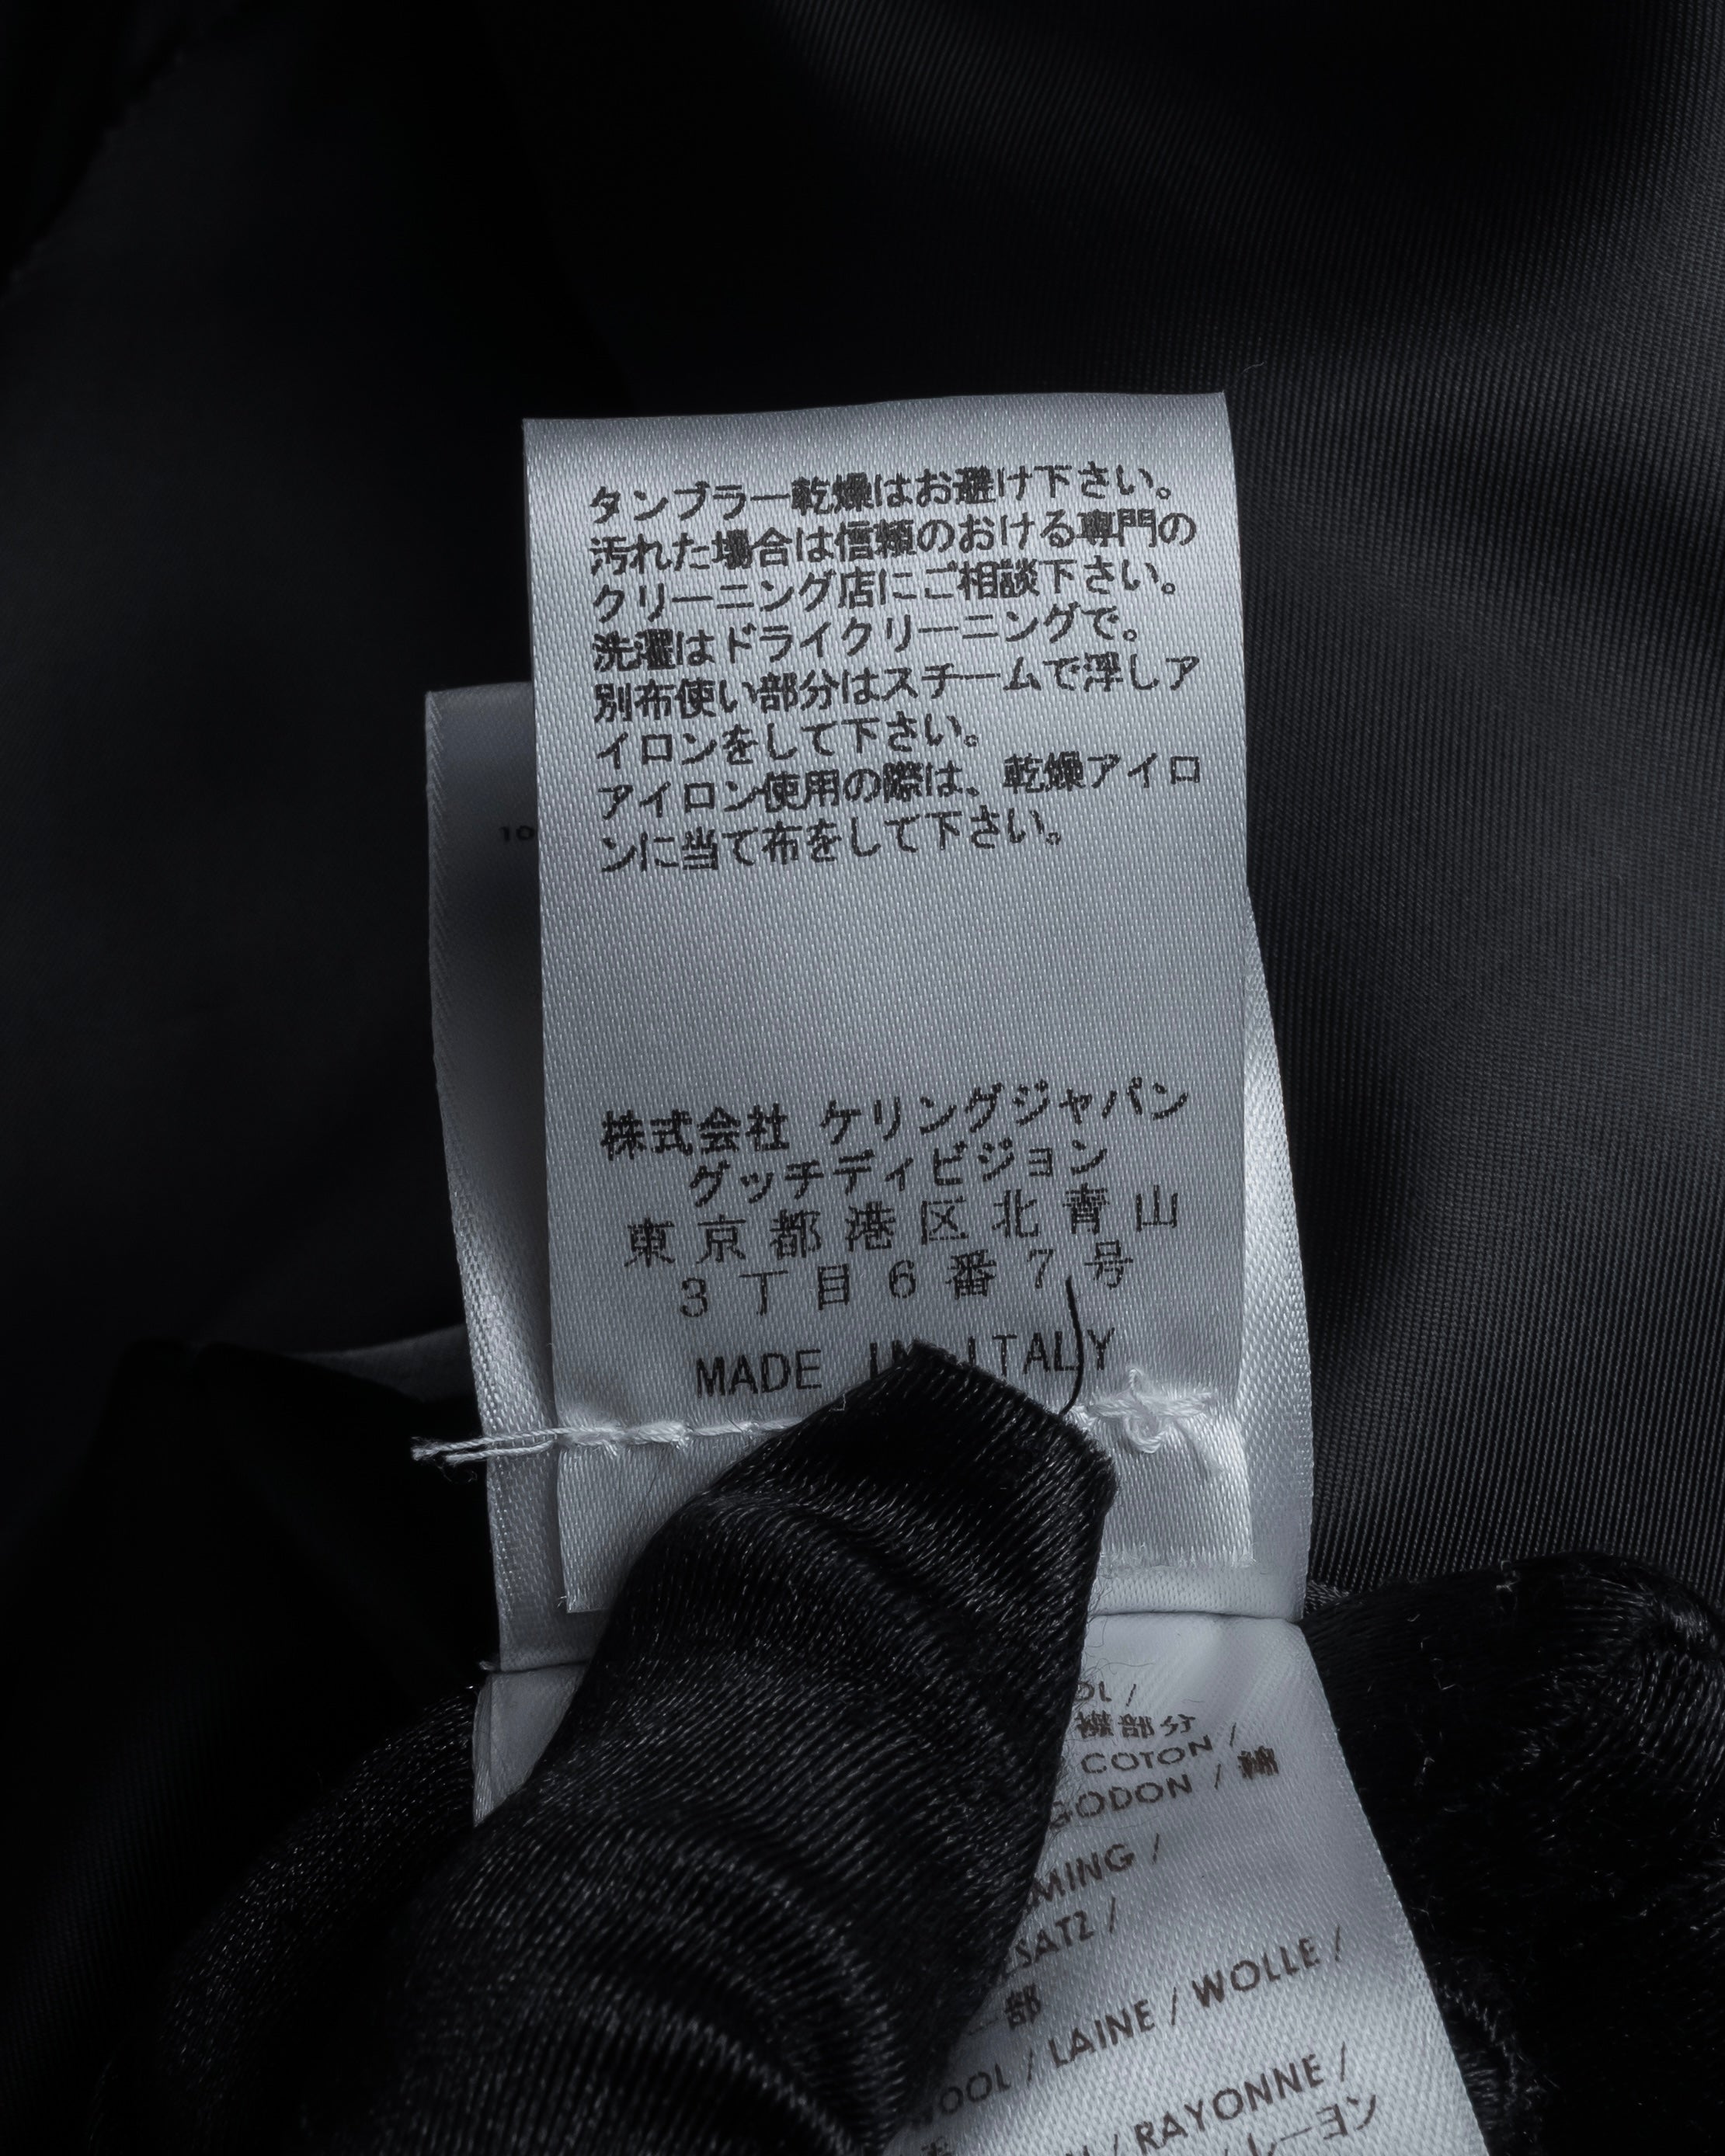 タンブラー乾燥はお避け下さい。
汚れた場合は信頼のおける専門の
クリーニング店にご相談下さい。
洗濯はドライクリーニングで。
別布使い部分はスチームで浮しア
イロンをして下さい。
アイロン使用の際は、乾燥アイロ
ンに当て布をして下さい。
10
株式会社 ケリングジャパン
グッチディビジョン
東京都港区北青山
3丁目6番7号
MADE IN ITALY
OL /
部分
COTON /
GODON / 綿
MING /
SATZ /
部
OOL / LAINE / WOLLE /
/ RAYONNE /
レーヨン